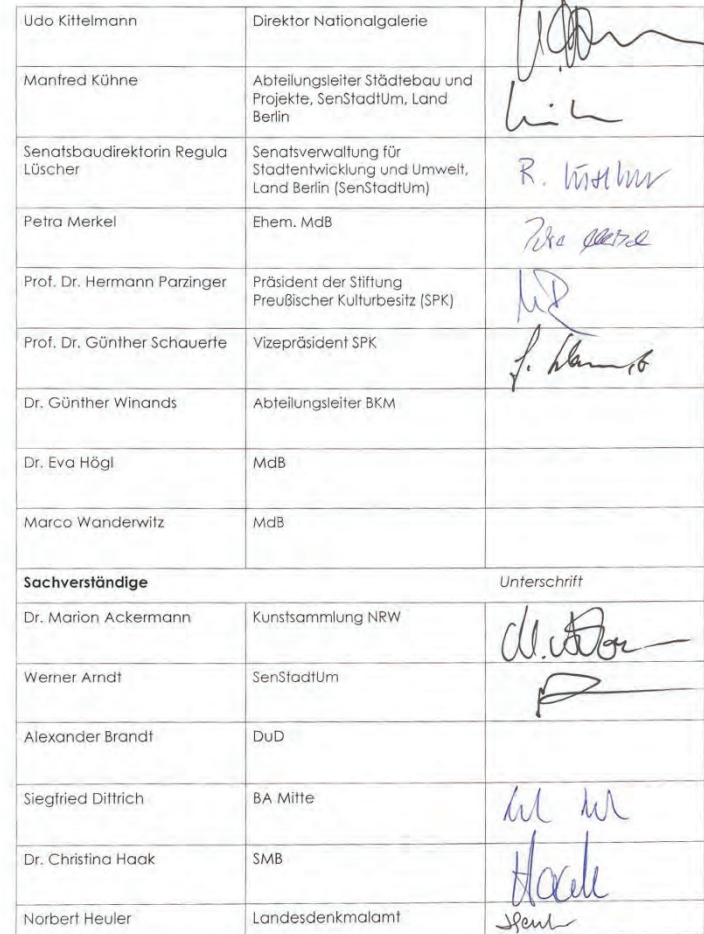 Udo Kittelmann Direktor Nationalgalerie
Manfred Kühne Abteilungsleiter Städtebau und
Projekte, SenStadtUm, Land
Berlin
Senatsbaudirektorin Regula Senatsverwaltung für
Lüscher Stadtentwicklung und Umwelt,
Land Berlin (SenStadtUm)
R. Lüscher
Petra Merkel Ehem. MdB
Petra Merkel
Prof. Dr. Hermann Parzinger Präsident der Stiftung
Preußischer Kulturbesitz (SPK)
Prof. Dr. Günther Schauerte Vizepräsident SPK
Dr. Günther Winands Abteilungsleiter BKM
Dr. Eva Högl MdB
Marco Wanderwitz MdB
Sachverständige Unterschrift
Dr. Marion Ackermann Kunstsammlung NRW
Werner Arndt SenStadtUm
Alexander Brandt DuD
Siegfried Dittrich BA Mitte
Dr. Christina Haak SMB
Haak
Norbert Heuler Landesdenkmalamt